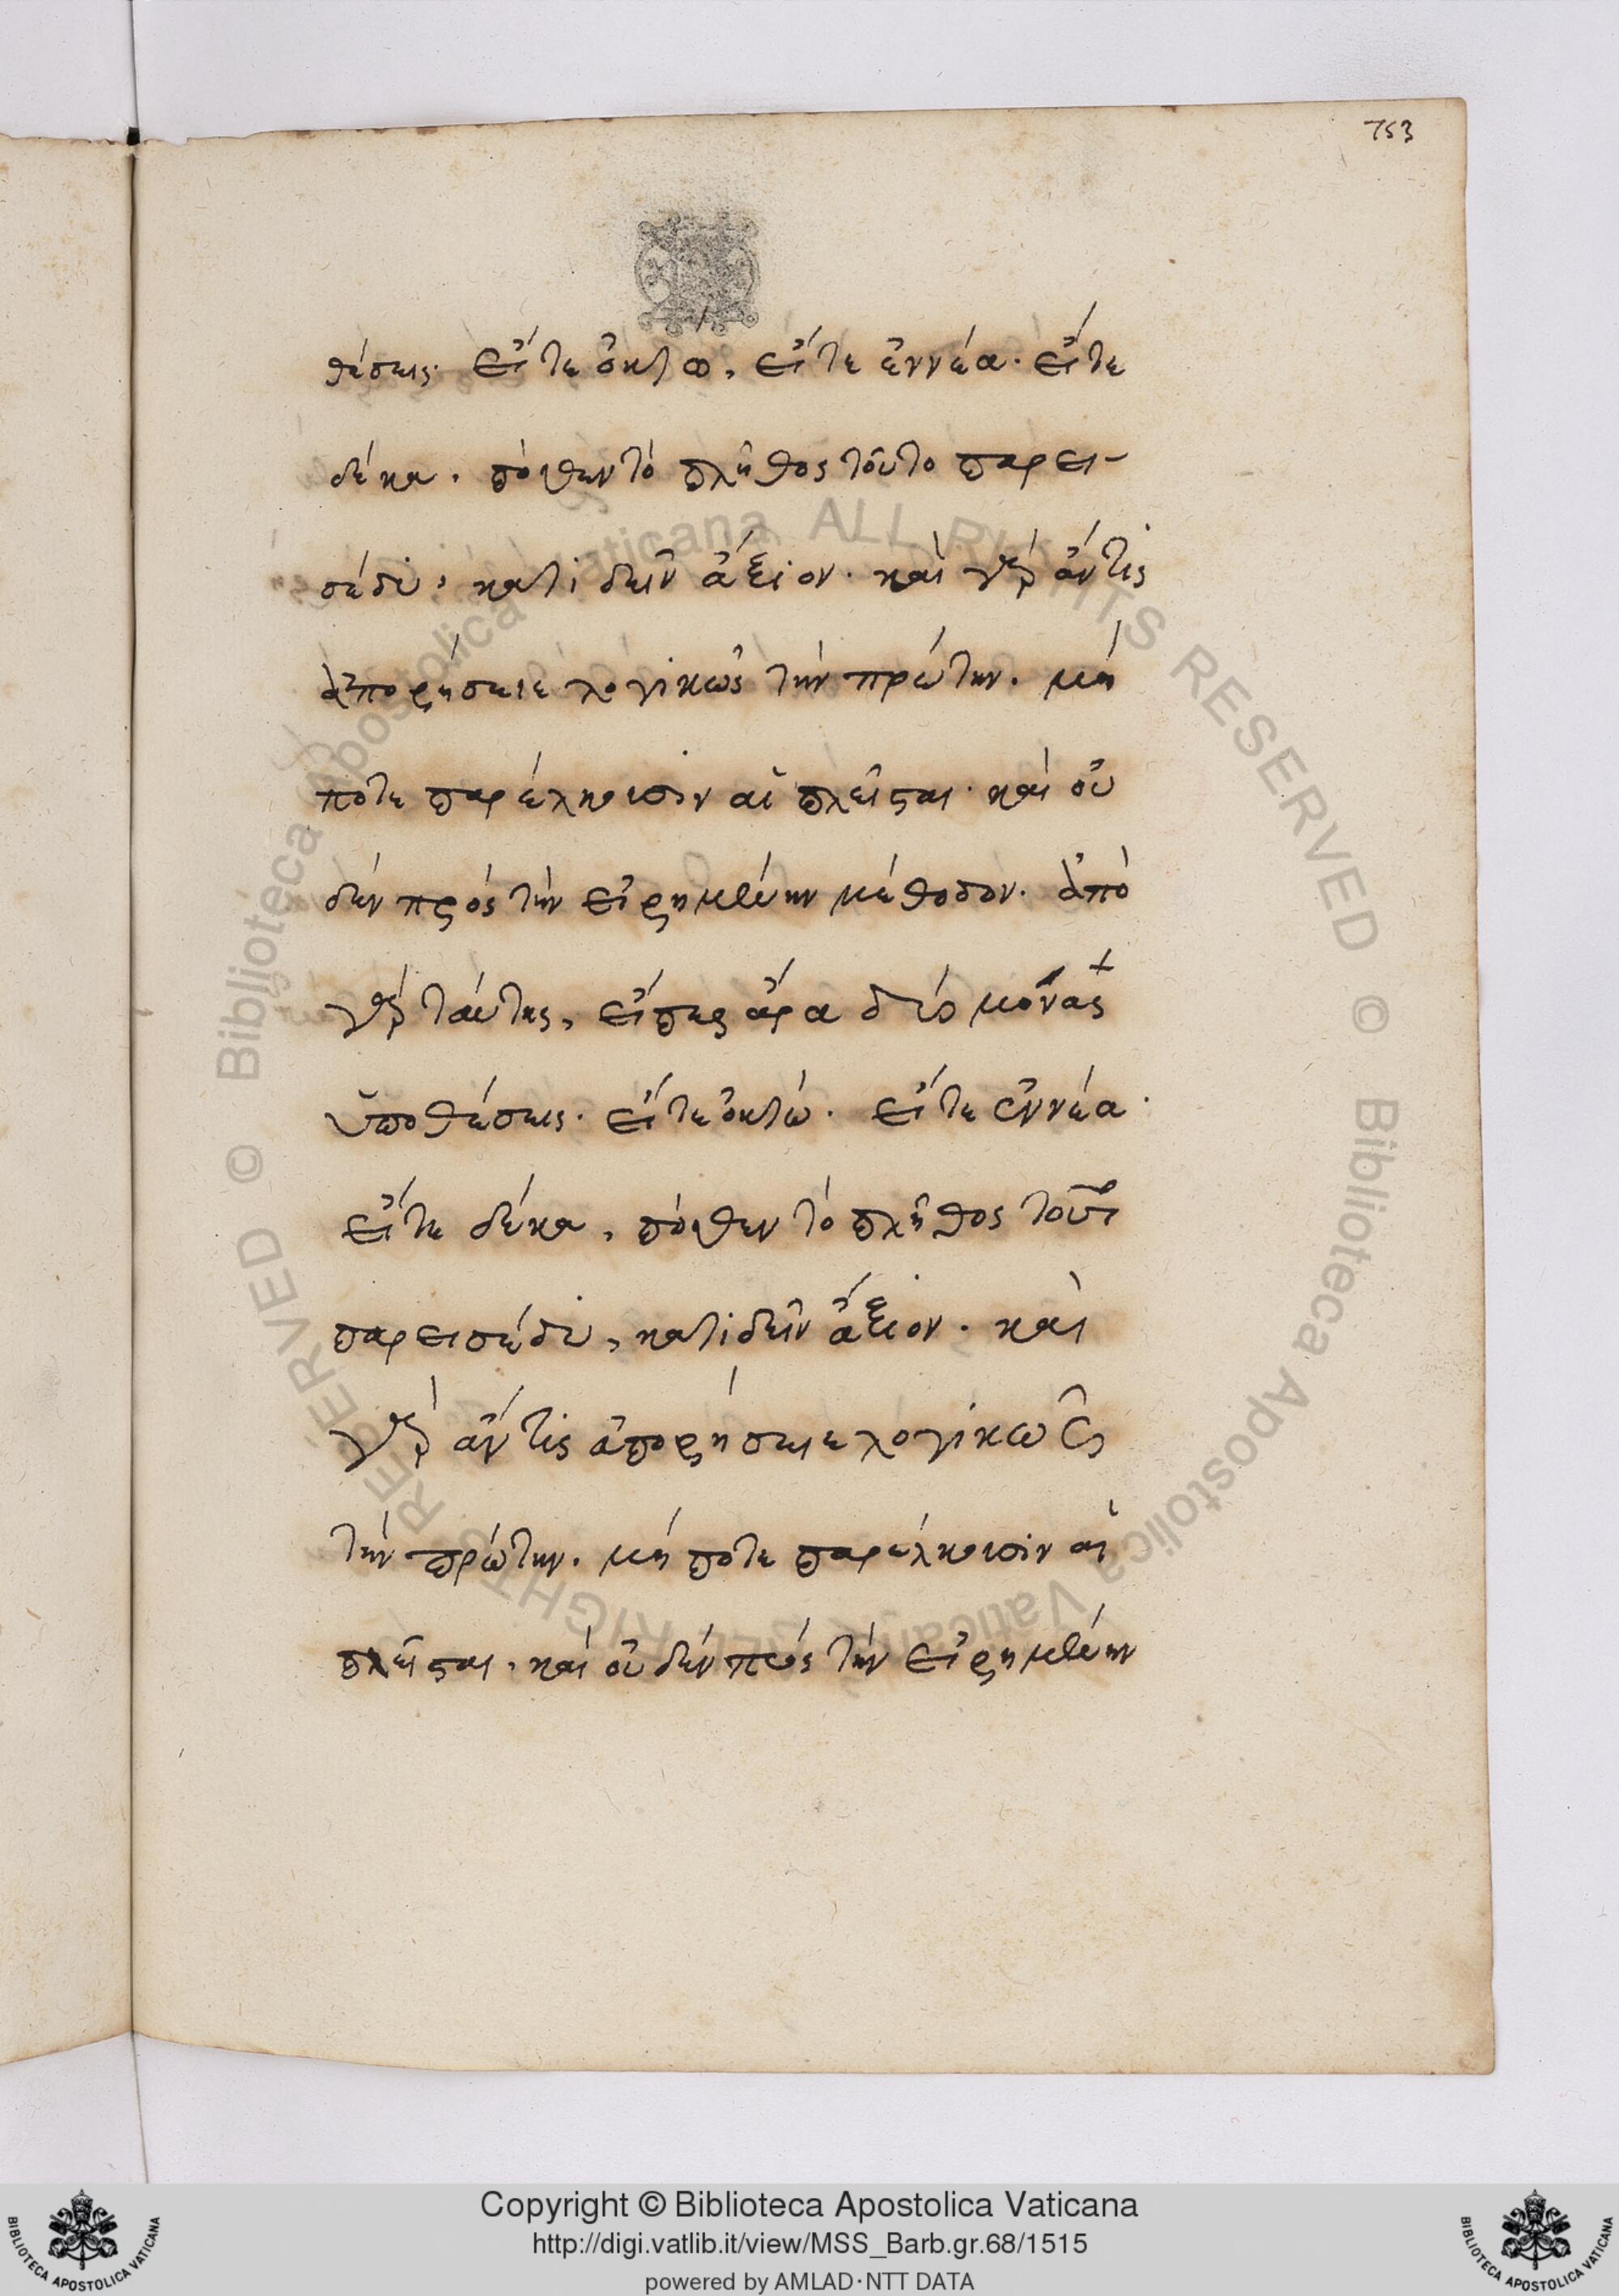 753
θέσεις· εἴτε ὀκτὼ, εἴτε ἐννέα· εἴτε
δέκα, πόθεν τὸ πλῆθος τοῦτο παρει-
σέδυ, κατιδεῖν ἄξιον· καὶ γὰρ ἄν τις
ἀπορήσειε λογικῶς τὴν πρώτην. μή
ποτε παρέλκουσιν αἱ πλεῖσται· καὶ οὐ
δὲν πρὸς τὴν εἰρημένην μέθοδον. ἀπὸ
γὰρ ταύτης, εἴπερ ἄρα δύο μόνας
ὑποθέσεις· εἴτε ὀκτώ· εἴτε ἐννέα·
εἴτε δέκα, πόθεν τὸ πλῆθος τοῦτο
παρεισέδυ, κατιδεῖν ἄξιον· καὶ
γὰρ ἄν τις ἀπορήσειε λογικῶς
τὴν πρώτην. μή ποτε παρέλκουσιν αἱ
πλεῖσται, καὶ οὐδὲν πρὸς τὴν εἰρημένην
© Biblioteca Apostolica Vaticana ALL RIGHTS RESERVED © Biblioteca Apostolica Vaticana ALL RIGHTS RESERVED
Copyright © Biblioteca Apostolica Vaticana
http://digi.vatlib.it/view/MSS_Barb.gr.68/1515
powered by AMLAD·NTT DATA
BIBLIOTECA APOSTOLICA VATICANA
BIBLIOTECA APOSTOLICA VATICANA